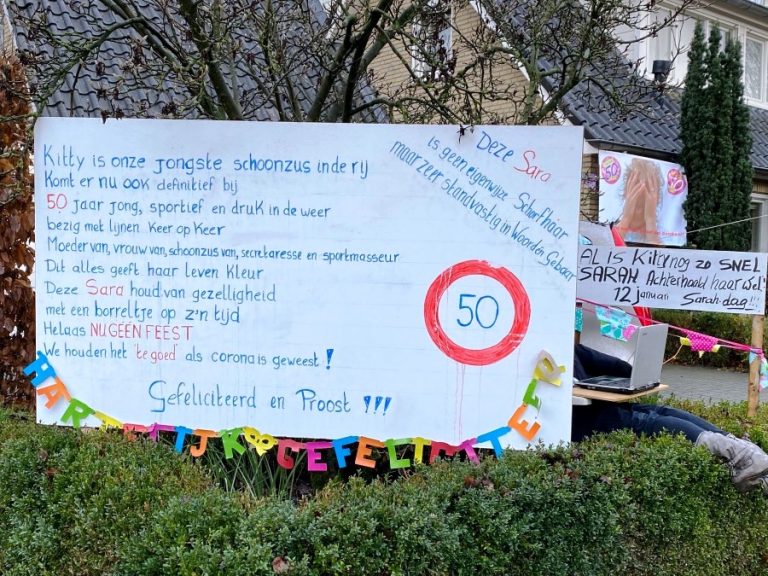 Kitty is onze jongste schoonzus in de rij
Komt er nu ook definitief bij
50 jaar jong, sportief en druk in de weer
bezig met lijnen keer op keer
Moeder van, vrouw van, schoonzus van, secretaresse en sportmasseur
Dit alles geeft haar leven kleur
Deze Sara houd van gezelligheid
met een borreltje op z'n tijd
Helaas NU GEEN FEEST
We houden het 'te goed' als corona is geweest!
Gefeliciteerd en Proost !!!
Deze Sara
is geen eigenwijze
maar zeer standvastig in Woord en Gebaar
50
HARTELIJK GEFELICITEERD
50
AL IS Kitty nog zo SNEL
SARAH Achterhaald haar wel!
12 januari Sarah-dag!!!